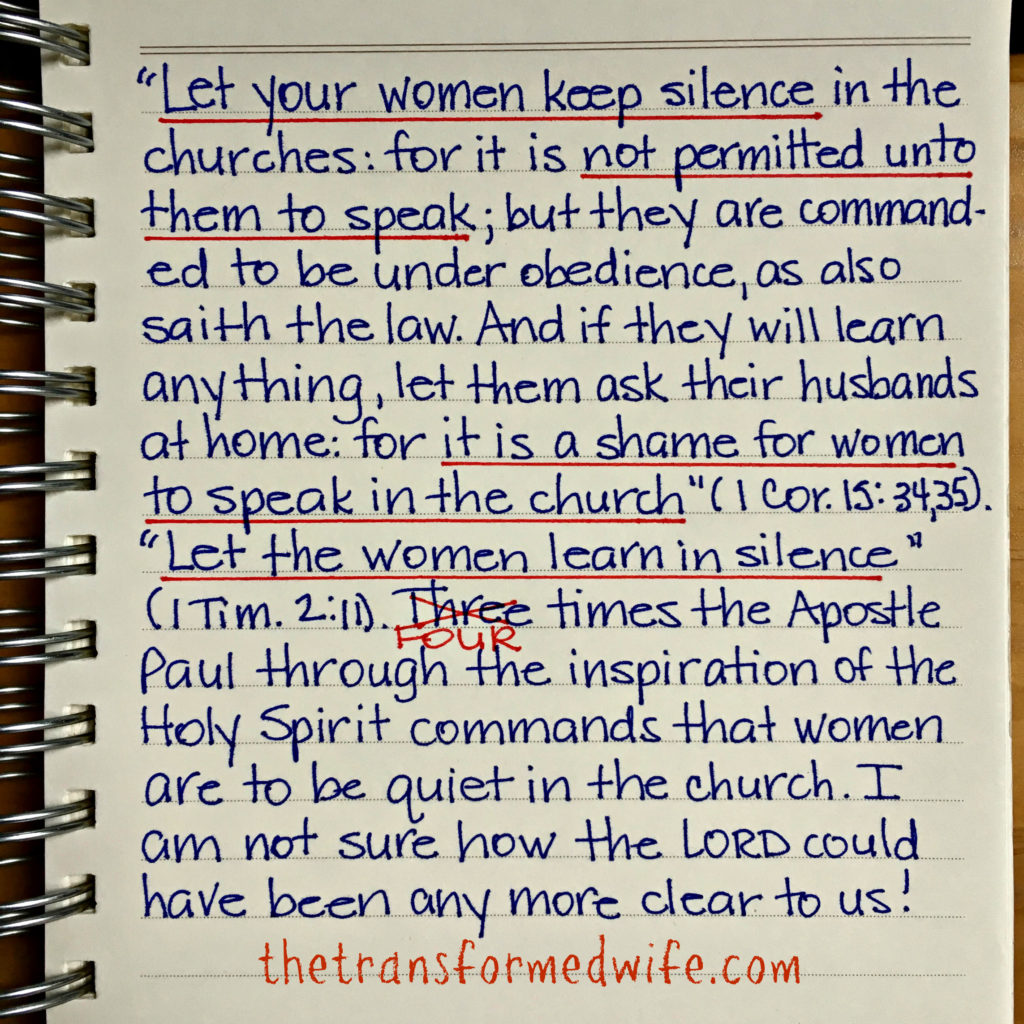 “Let your women keep silence in the
churches: for it is not permitted unto
them to speak; but they are command-
ed to be under obedience, as also
saith the law. And if they will learn
anything, let them ask their husbands
at home: for it is a shame for women
to speak in the church" (1 Cor. 15: 34,35).
“Let the women learn in silence”
(1 Tim. 2:11). Three times the Apostle
FOUR
Paul through the inspiration of the
Holy Spirit commands that women
are to be quiet in the church. I
am not sure how the LORD could
have been any more clear to us!
thetransformedwife.com